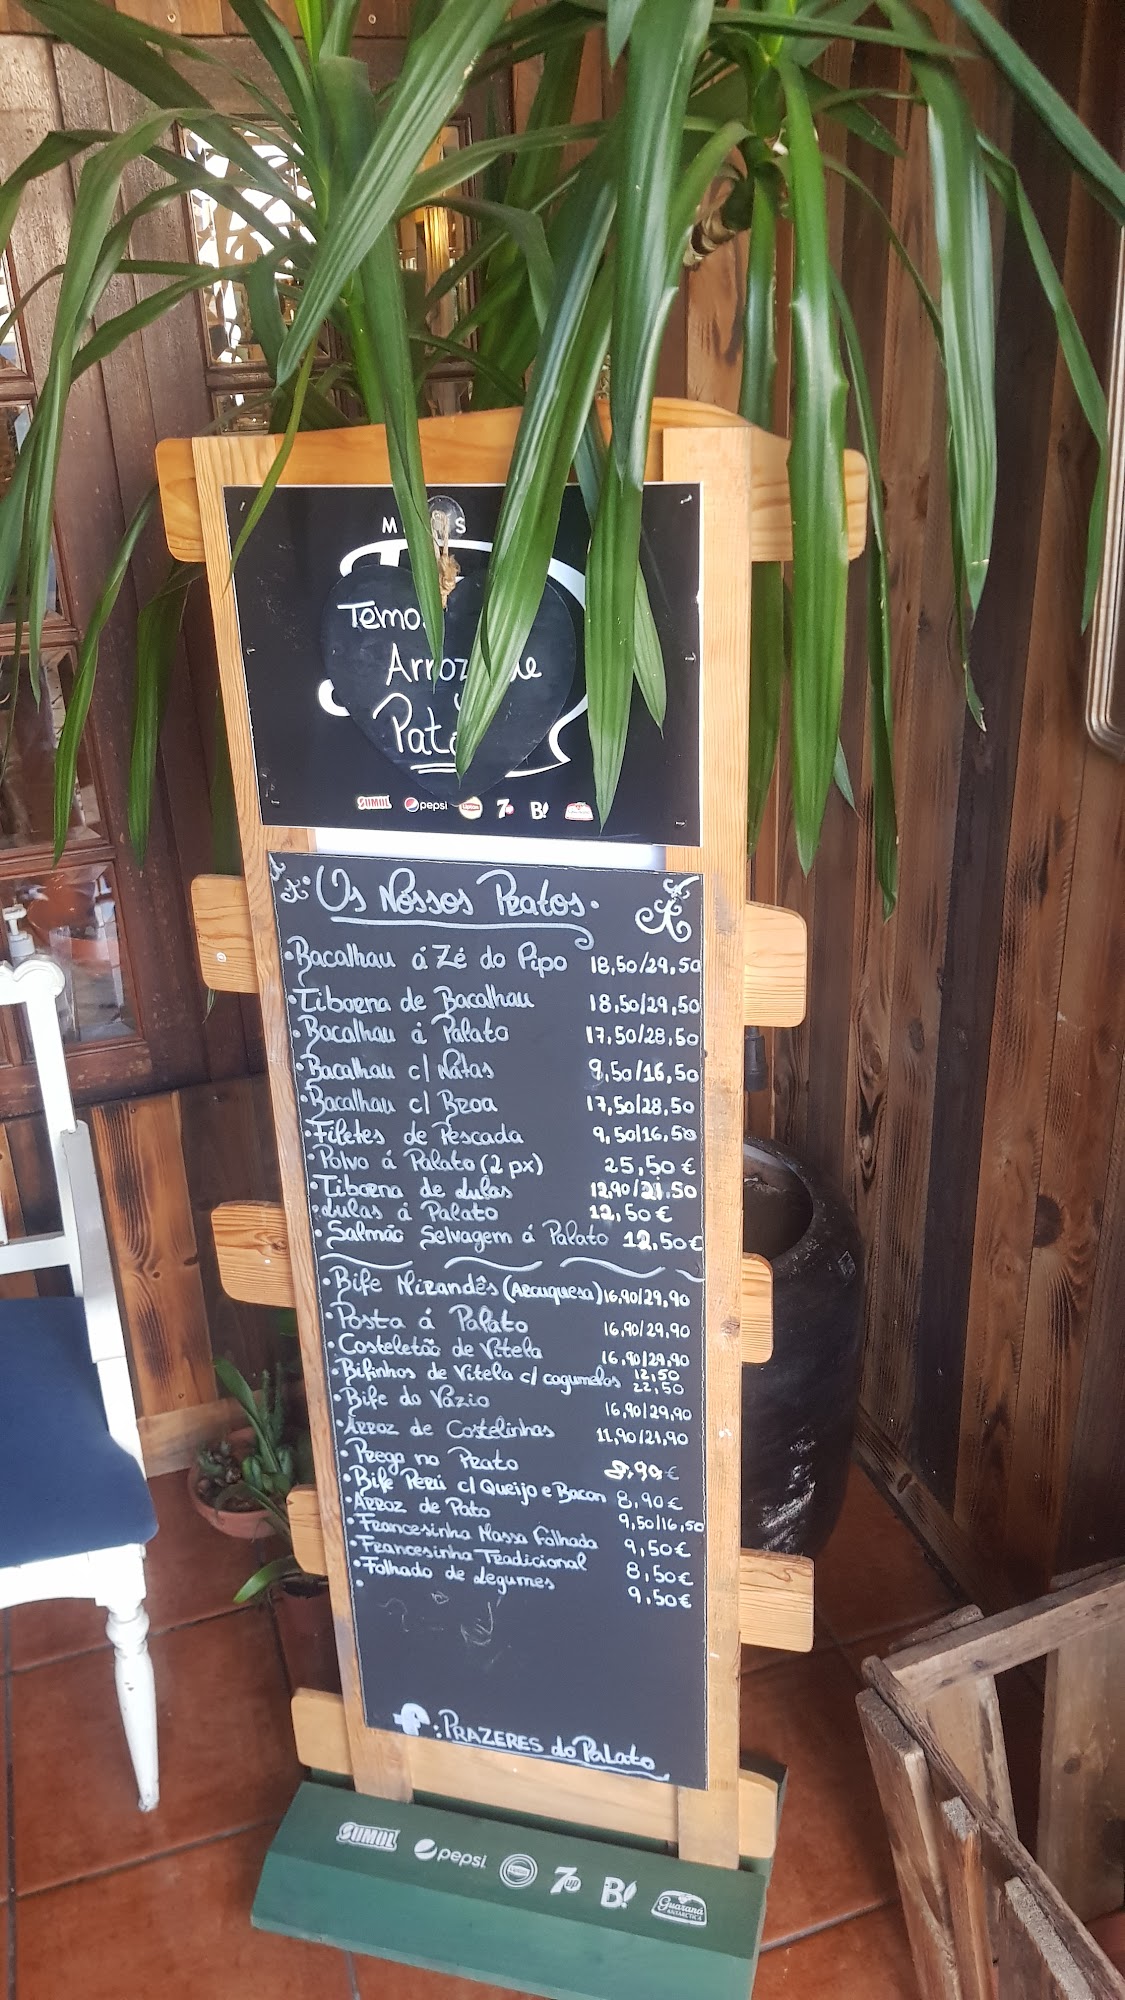 M S
Temos
Arroz de
Pato
SUMOL pepsi Lipton 7 B!
Os Nossos Pratos.
•Bacalhau á Zé do Pipo 18,50/29,50
•Tiborna de Bacalhau 18,50/29,50
•Bacalhau á Palato 17,50/28,50
•Bacalhau c/ Natas 9,50/16,50
•Bacalhau c/ Broa 17,50/28,50
•Filetes de Pescada 9,50/16,50
•Polvo á Palato (2 px) 25,50 €
•Tiborna de Lulas 12,90/21,50
•Lulas á Palato 12,50 €
•Salmão Selvagem á Palato 12,50 €
•Bife Mirandês (Arouquesa) 16,90/29,90
•Posta á Palato 16,90/29,90
•Costeletão de Vitela 16,90/29,90
•Bifinhos de Vitela c/ cogumelos 12,50
22,50
•Bife do Vazio 16,90/29,90
•Arroz de Costelinhas 11,90/21,90
•Prego no Prato 8,90 €
•Bife Perú c/ Queijo e Bacon 8,90 €
•Arroz de Pato 9,50/16,50
•Francesinha Massa Folhada 9,50 €
•Francesinha Tradicional 8,50 €
•Folhado de Legumes 9,50 €
•
: PRAZERES do PaLato
SUMOL pepsi Lipton 7up B! Guaraná ANTARCTICA